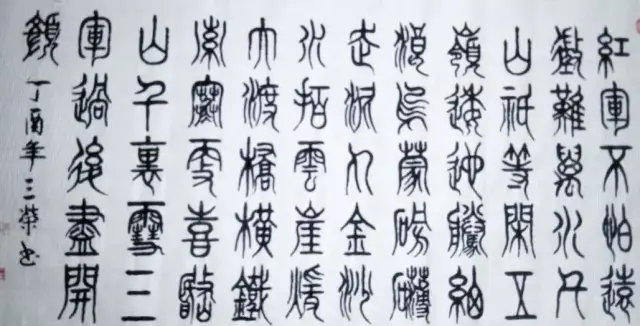 紅軍不怕遠
徵難萬水千
山祇等閑五
嶺逶迤騰細
浪烏蒙磅礴
走泥丸金沙
水拍雲崖暖
大渡橋橫鐵
索寒更喜岷
山千裏雪三
軍過後盡開
顏
丁酉年三榮书